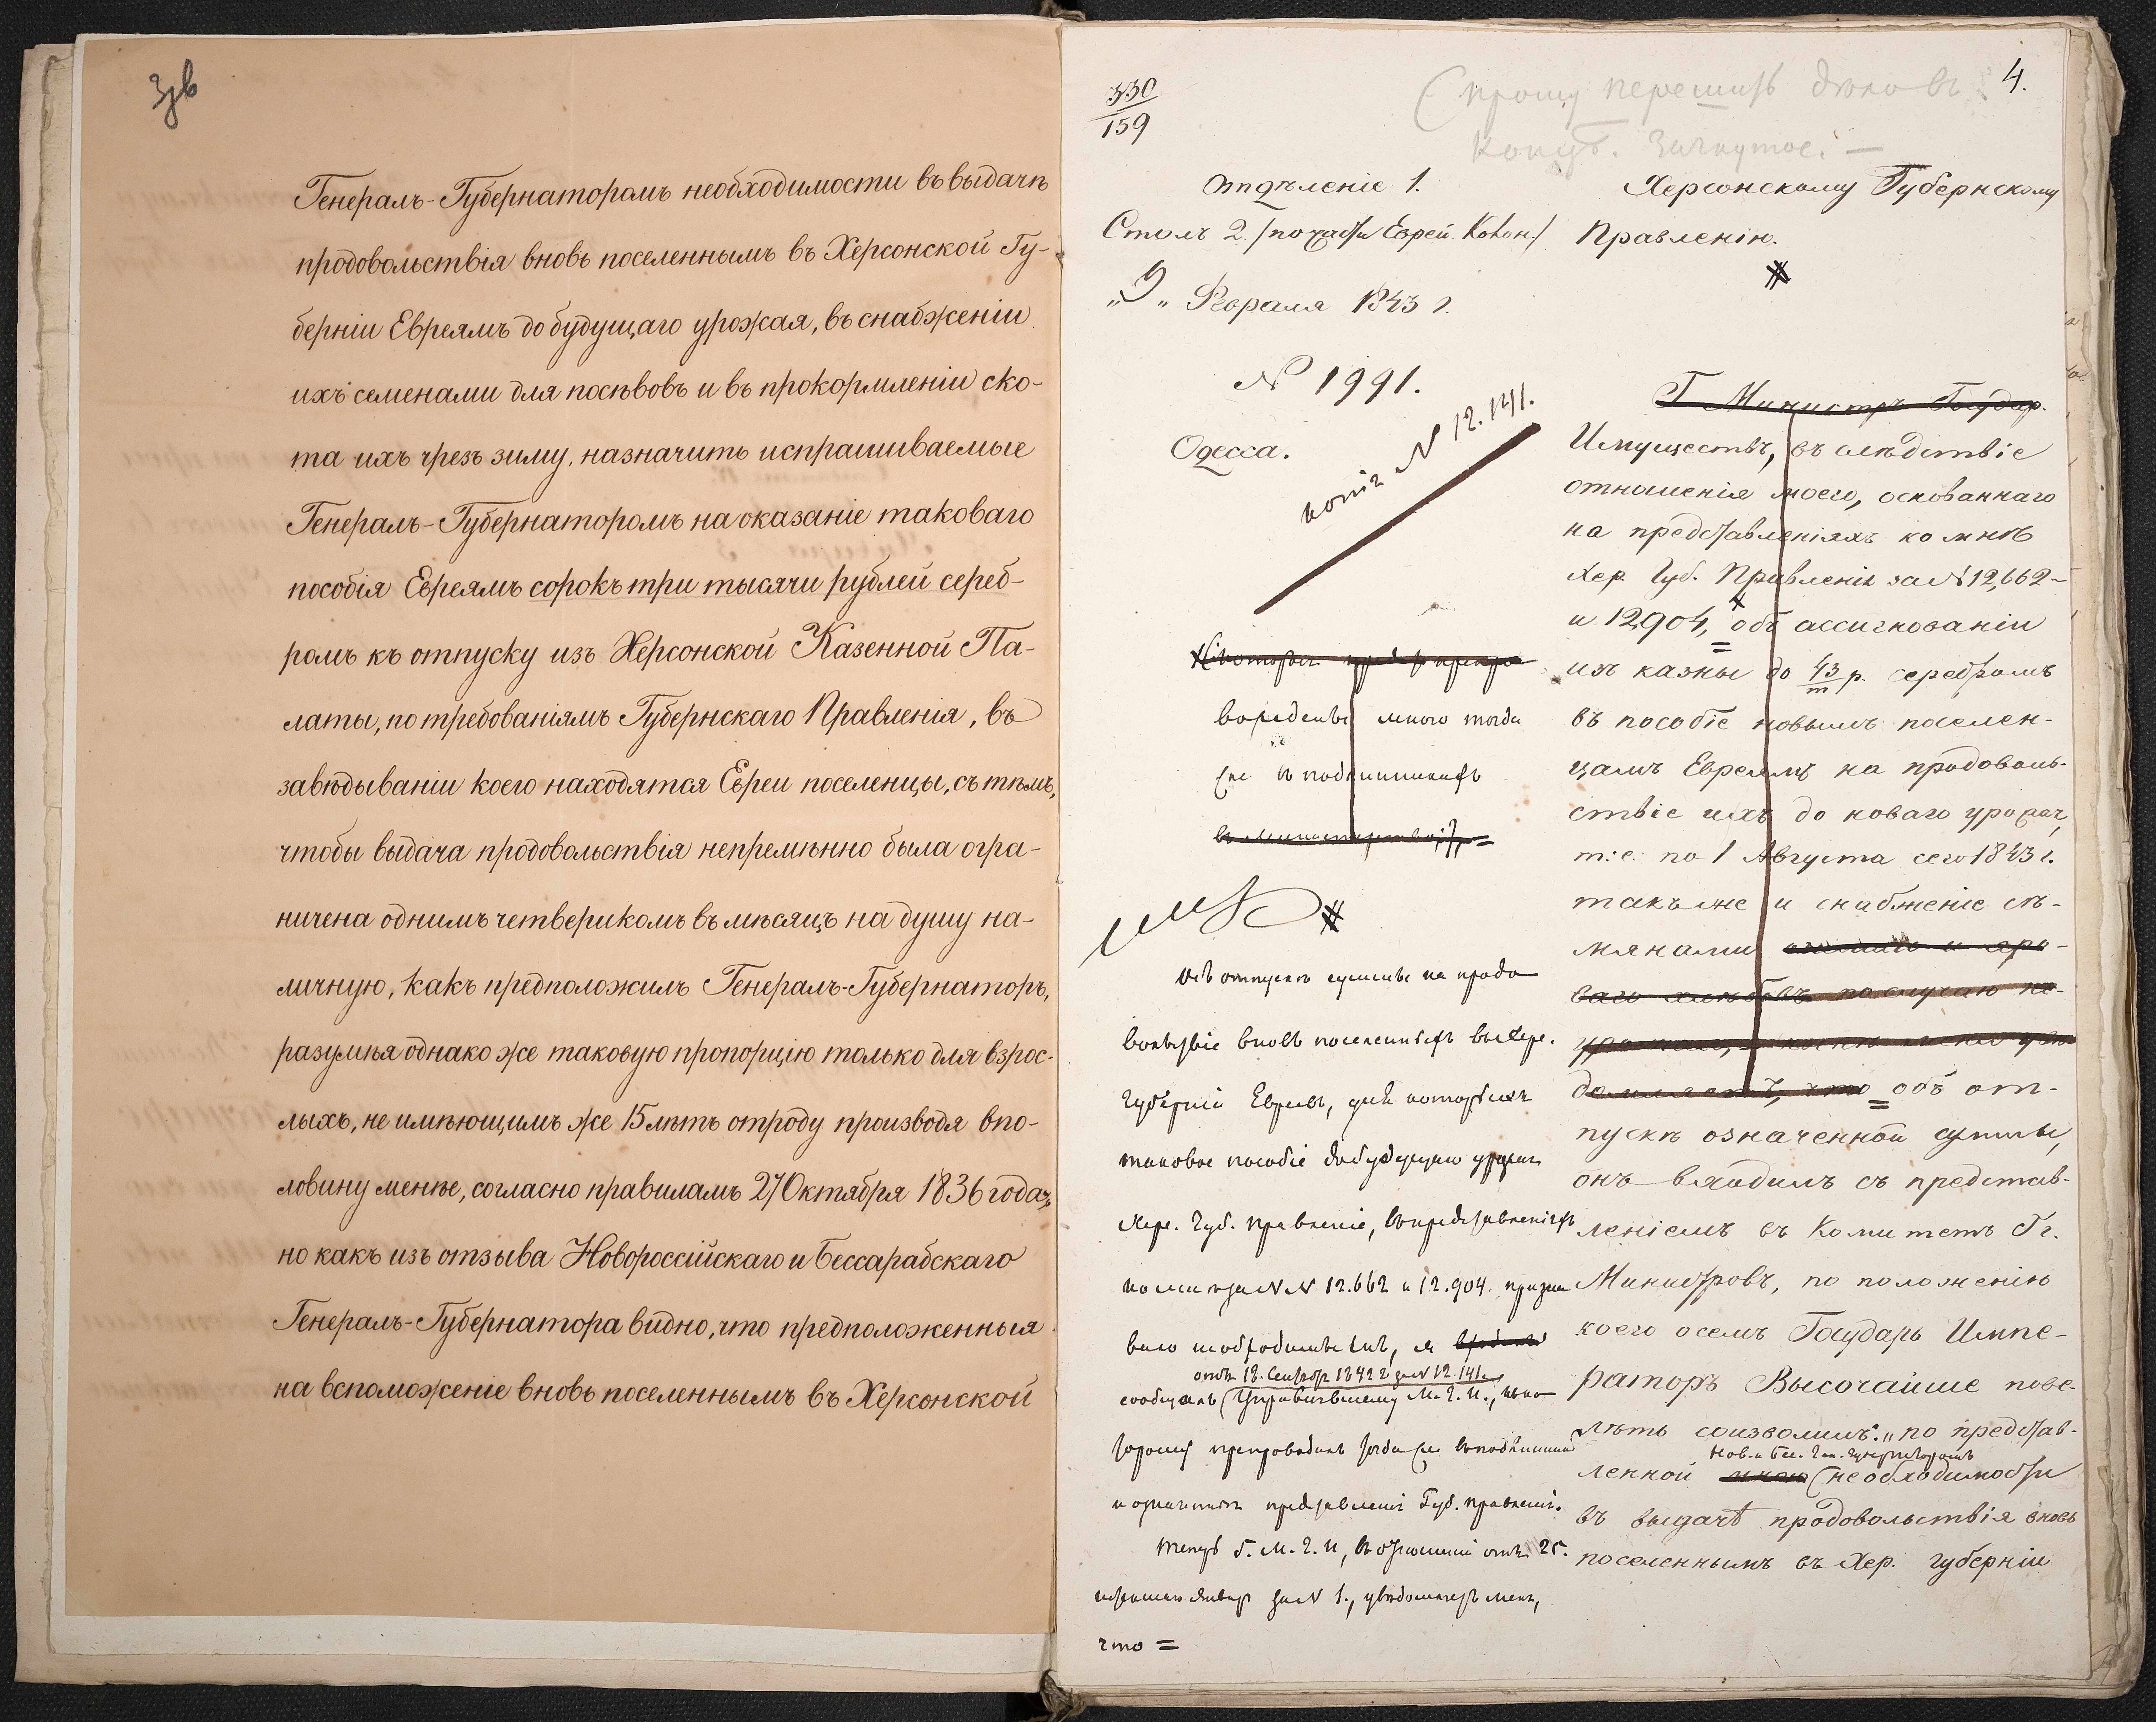 Генералъ-Губернаторомъ необходимости въ выдачѣ
продовольствія вновь поселеннымъ въ Херсонской Гу-
берніи Евреямъ до будущаго урожая, въ снабженіи
ихъ семенами для посѣвовъ и въ прокормленіи ско-
та ихъ чрезъ зиму, назначить испрашиваемые
Генералъ-Губернаторомъ на оказаніе таковаго
пособія Евреямъ сорокъ три тысячи рублей сереб-
ромъ къ отпуску изъ Херсонской Казенной Па-
латы, по требованіямъ Губернскаго Правленія, въ
завѣдываніи коего находятся Евреи поселенцы, съ тѣмъ,
чтобы выдача продовольствія непремѣнно была огра-
ничена однимъ четверикомъ въ мѣсяцъ на душу на-
личную, какъ предположилъ Генералъ-Губернаторъ,
разумѣя однако же таковую пропорцію только для взрос-
лыхъ, не имѣющимъ же 15 лѣтъ отроду производя впо-
ловину менѣе, согласно правиламъ 27 Октября 1836 года,
но какъ изъ отзыва Новороссійскаго и Бессарабскаго
Генералъ-Губернатора видно, что предположенныя
на вспоможеніе вновь поселеннымъ въ Херсонской
4.
330
159
прошу
Отдѣленіе 1.
Столъ 2. /по части Еврей. Колон./
„9„ Февраля 1843 г.
N 1991.
Одесса.
копія N 12.141.
Херсонскому Губернскому
Правленію.
Г. Министръ Государ.
Имуществъ, въ слѣдствіе
отношенія моего, основаннаго
на представленіяхъ ко мнѣ
Хер. Губ. Правленія за N 12,662
и 12,904, объ ассигнованіи
изъ казны до 43/т р. серебромъ
въ пособіе новымъ поселен-
цамъ Евреямъ на продоволь-
ствіе ихъ до новаго урожая,
т: е. по 1 Августа сего 1843 г.
также и снабженіе сѣ-
мянами
= объ от-
пускѣ означенной суммы,
онъ входилъ съ представ-
леніемъ въ Комитетъ Гг.
Министровъ, по положенію
коего осемъ Государь Импе-
раторъ Высочайше пове-
лѣть соизволилъ: „по представ-
Нов. и Бес. Ген. Губернаторомъ
ленной мною необходимости
въ выдачѣ продовольствія вновь
поселеннымъ въ Хер. губерніи
въ подлинникахъ
въ Министерство
Объ отпускѣ суммы на продо
вольствіе вновь поселенныхъ въ Хер.
губерніи Евреевъ, для которыхъ
таковое пособіе до будущаго урожая
Хер. Губ. Правленіе, въ представленіяхъ
ко мнѣ за NN 12.662 и 12.904. призна
вало необходимымъ, я
отъ 18 Сентябр 1842 г за N 12.141.
сообщалъ Управлявшему М. Г. И.,
и означенныя представленія Губ. Правленія.
Теперь Г. М. Г. И, въ отношеніи отъ 25.
Январ за N 1., увѣдомляетъ меня,
что =